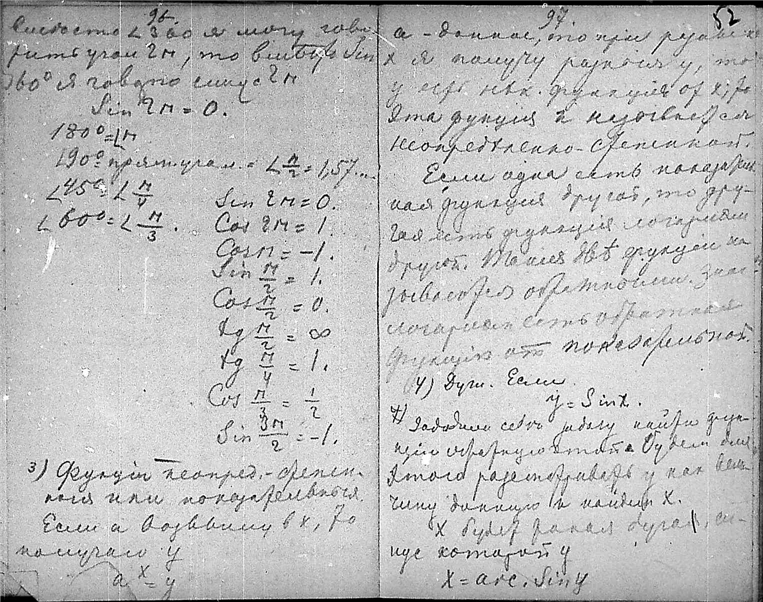 96.
Вместо ∠360 я могу гово-
рить угол 2π, то вместо Sin
360° я говорю синус 2π
Sin 2π = 0.
180° = ∠π
∠90° = прям. угол = ∠π/2 = 1,57...
∠45° = ∠π/4
∠60° = ∠π/3.
Sin 2π = 0.
Cos 2π = 1.
Cos π = -1.
Sin π/2 = 1.
Cos π/2 = 0.
tg π/2 = ∞
tg π/4 = 1.
Cos π/3 = 1/2
Sin 3π/2 = -1.
3) Функции неопред.-степен-
ная или показательная.
Если a возвышу в x, то
получаю y
a^x = y
97
52
a - данное, то при разных
x я получу разныя y, то
y есть нек. функция от x; то
эта функция и называется
неопределенно-степенной.
Если одна есть показатель-
ная функция другой, то дру-
гая есть функция логарифм
другой. Такия две функции на-
зываются обратными. Знач.
логарифм есть обратная
функция от показательной.
4) Дуги. Если
y = Sin x.
Зададим себе задачу найти функ-
цию обратную этой. Будем для
этого рассматривать y как вели-
чину данную и найдем x.
x будет такая дуга, си-
нус которой y
x = arc. Sin y